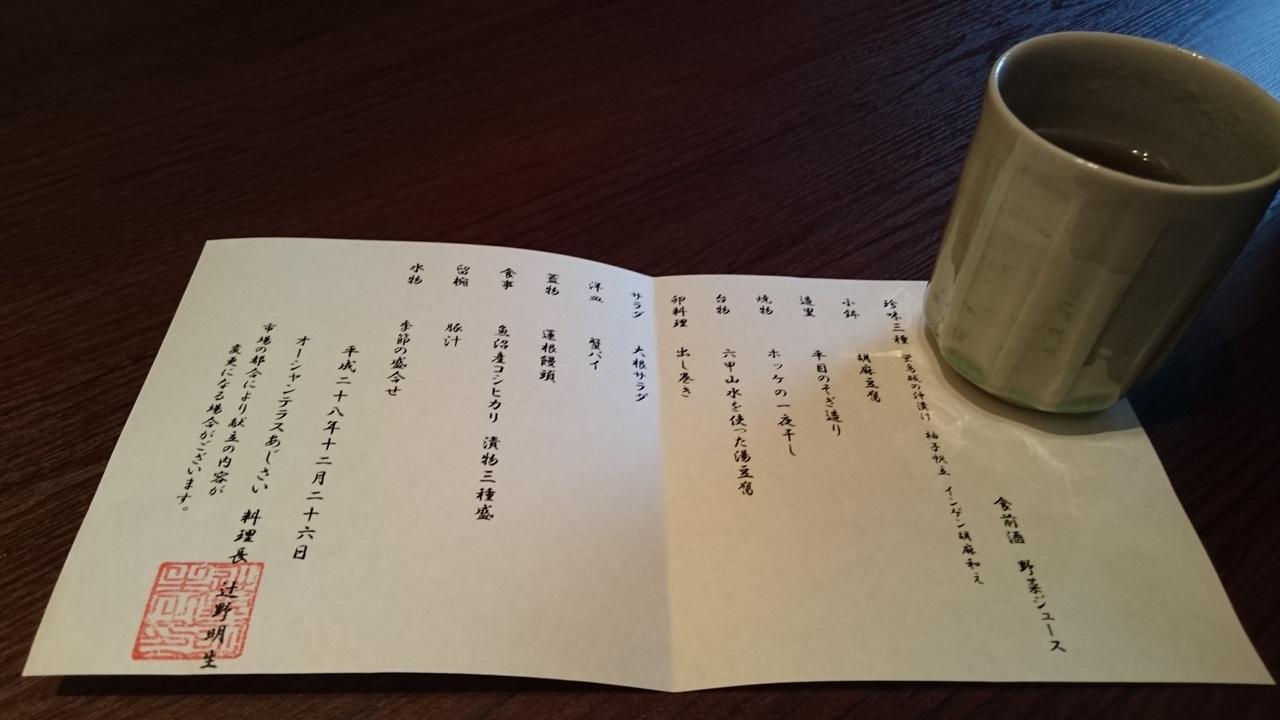 食前酒 野菜ジュース
珍味三種 の 柚子帆立 インゲン胡麻和え
小鉢 胡麻豆腐
造里 平目のそぎ造り
焼物 ホッケの一夜干し
台物 六甲山水を使った湯豆腐
卵料理 出し巻き
サラダ 大根サラダ
洋皿 蟹パイ
蓋物 蓮根饅頭
食事 魚沼産コシヒカリ 漬物三種盛
留椀 豚汁
水物 季節の盛合せ
平成二十八年十二月二十六日
オーシャンテラスあじさい 料理長 辻野明生
市場の都合により献立の内容が
変更になる場合がございます。